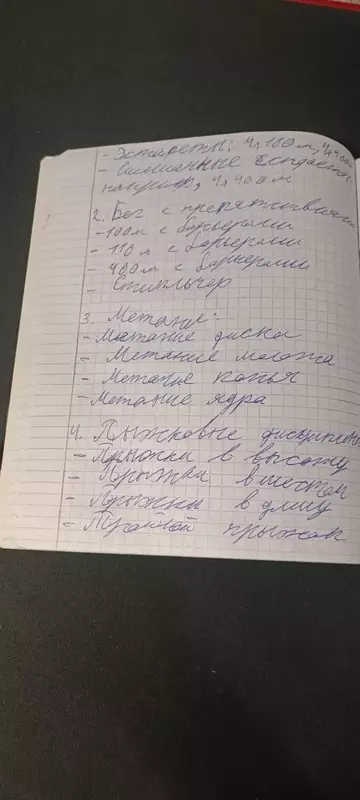 - Эстафеты: 4х100м, 4х400м
- Смешанные эстафеты
например, 4х400м
2. Бег с препятствиями
- 100м с барьерами
- 110м с барьерами
- 400м с барьерами
- Стипльчез
3. Метание:
- Метание диска
- Метание молота
- Метание копья
- Метание ядра
4. Прыжковые дисциплины
- Прыжки в высоту
- Прыжки с шестом
- Прыжки в длину
- Тройной прыжок